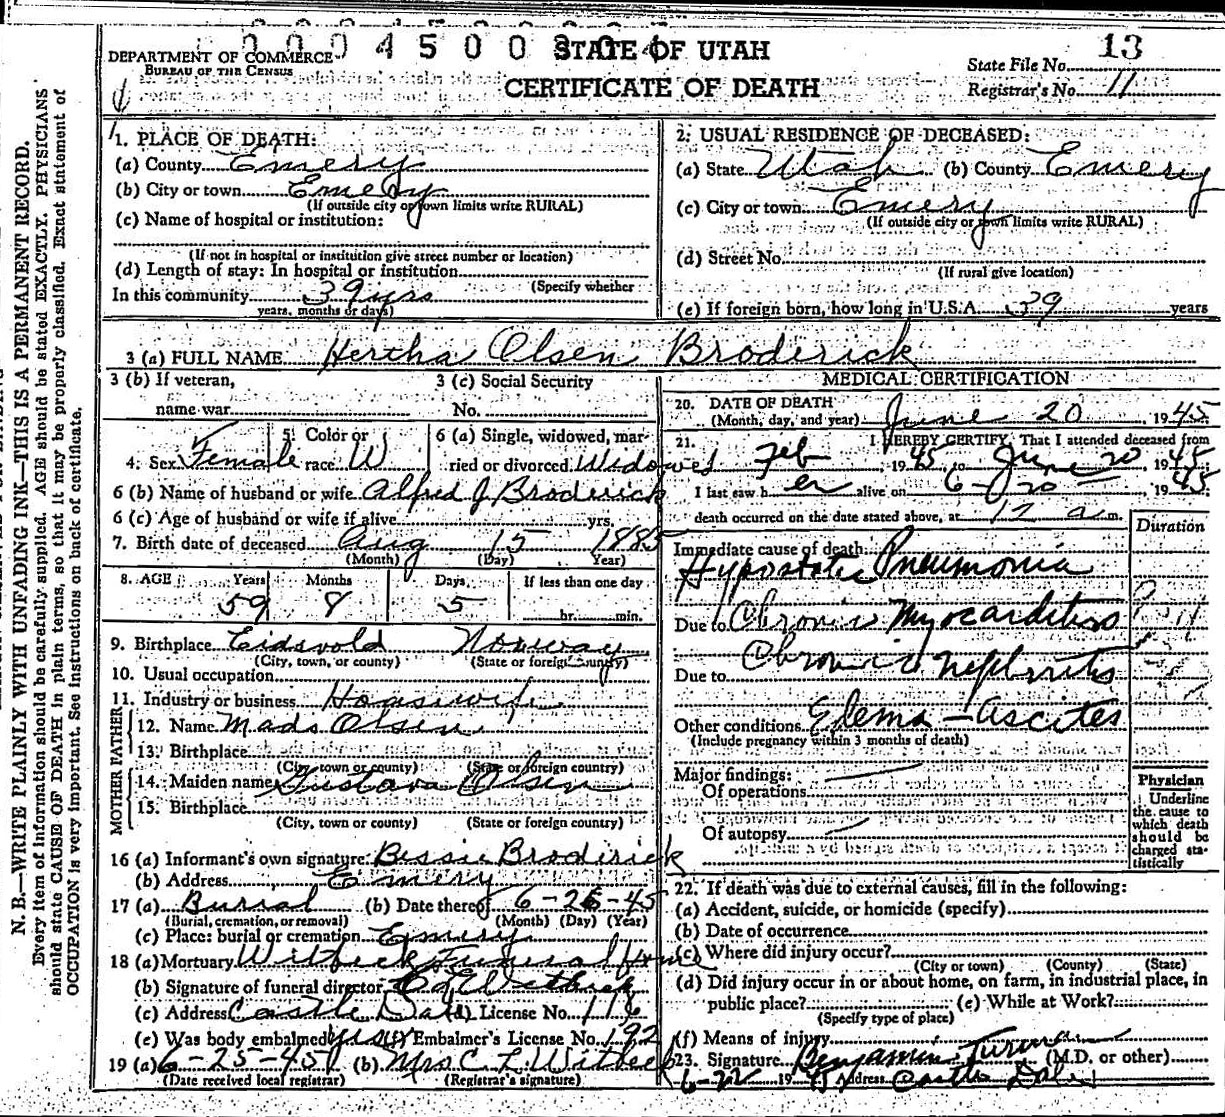 0 0 0 4 5 0 0 0 0 4
DEPARTMENT OF COMMERCE
BUREAU OF THE CENSUS
STATE OF UTAH
CERTIFICATE OF DEATH
State File No. 13
Registrar's No. 11
1. PLACE OF DEATH:
(a) County Emery
(b) City or town Emery
(If outside city or town limits write RURAL)
(c) Name of hospital or institution:
(If not in hospital or institution give street number or location)
(d) Length of stay: In hospital or institution
(Specify whether
In this community 39 yrs
years, months or days)
2. USUAL RESIDENCE OF DECEASED:
(a) State Utah (b) County Emery
(c) City or town Emery
(If outside city or town limits write RURAL)
(d) Street No.
(If rural give location)
(e) If foreign born, how long in U.S.A. 39 years
3 (a) FULL NAME Hertha Olsen Broderick
3 (b) If veteran,
name war
3 (c) Social Security
No.
4. Sex Female
5. Color or
race W
6 (a) Single, widowed, mar-
ried or divorced Widowed
6 (b) Name of husband or wife Alfred J Broderick
6 (c) Age of husband or wife if alive yrs.
7. Birth date of deceased Aug 15 1885
(Month) (Day) (Year)
8. AGE Years Months Days If less than one day
59 8 5 hr. min.
9. Birthplace Eidsvold Norway
(City, town, or county) (State or foreign county)
10. Usual occupation
11. Industry or business Housewife
FATHER
12. Name Mads Olsen
13. Birthplace
(City, town or county) (State or foreign country)
MOTHER
14. Maiden name Gustava Olsen
15. Birthplace
(City, town or county) (State or foreign country)
16 (a) Informant's own signature Bessie Broderick
(b) Address Emery
17 (a) Burial (b) Date thereof 6-25-45
(Burial, cremation, or removal) (Month) (Day) (Year)
(c) Place: burial or cremation Emery
18 (a) Mortuary Witbeck Funeral Home
(b) Signature of funeral director C L Witbeck
(c) Address Castle Dale (d) License No. 116
(e) Was body embalmed yes (f) Embalmer's License No. 192
19 (a) 6-25-45 (b) Mrs C L Witbeck
(Date received local registrar) (Registrar's signature)
MEDICAL CERTIFICATION
20. DATE OF DEATH
(Month, day, and year) June 20, 1945
21. I HEREBY CERTIFY, That I attended deceased from
Feb, 1945 to June 20, 1945
I last saw her alive on 6-20, 1945
death occurred on the date stated above, at 12 a m.
Duration
Immediate cause of death
Hypostatic Pneumonia
Due to Chronic Myocarditis
Chronic Nephritis
Due to
Other conditions Edema - ascites
(Include pregnancy within 3 months of death)
Major findings:
Of operations
Of autopsy
Physician
Underline
the cause to
which death
should be
charged sta-
tistically
22. If death was due to external causes, fill in the following:
(a) Accident, suicide, or homicide (specify)
(b) Date of occurrence
(c) Where did injury occur?
(City or town) (County) (State)
(d) Did injury occur in or about home, on farm, in industrial place, in
public place? (e) While at Work?
(Specify type of place)
(f) Means of injury
23. Signature Benjamin Turman (M.D. or other)
6-22 19 Address Castle Dale
N. B.—WRITE PLAINLY WITH UNFADING INK—THIS IS A PERMANENT RECORD.
Every item of information should be carefully supplied. AGE should be stated EXACTLY. PHYSICIANS
should state CAUSE OF DEATH in plain terms, so that it may be properly classified. Exact statement of
OCCUPATION is very important. See instructions on back of certificate.